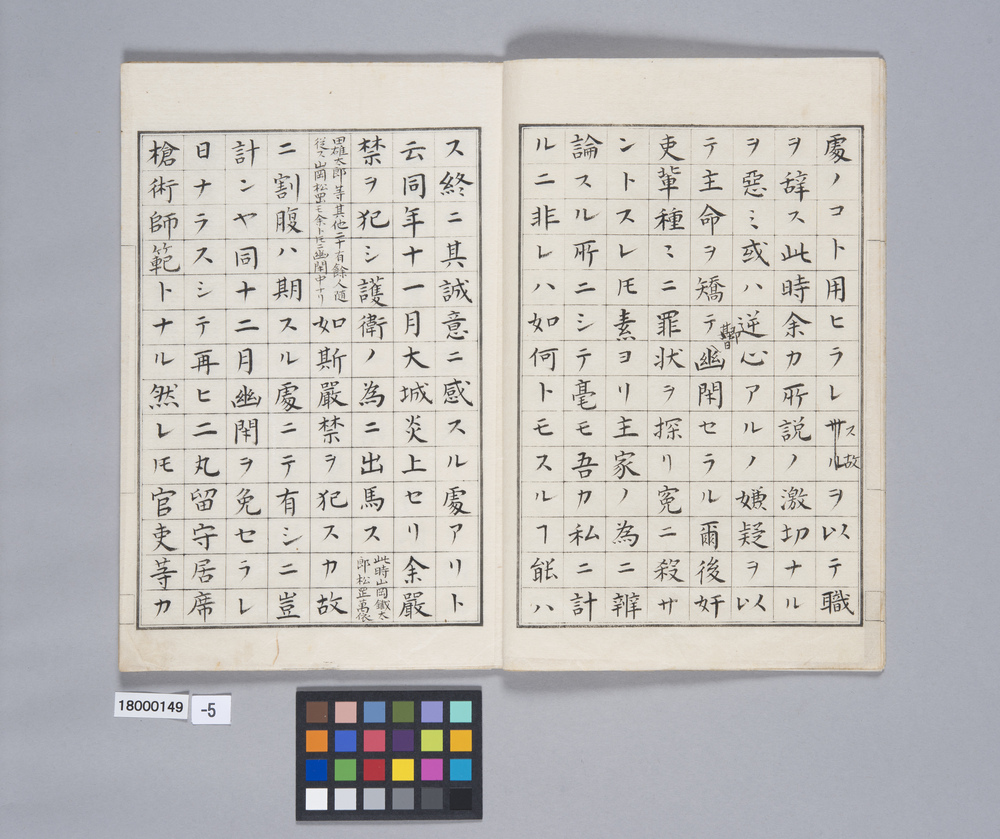 處ノコト用ヒラレサルヲ以テ職
ス故
ヲ辞ス此時余カ所説ノ激切ナル
ヲ惡ミ或ハ逆心アルノ嫌疑ヲ以
テ主命ヲ矯テ幽閉セラル爾後奸
吏輩種〻ニ罪状ヲ探リ寃ニ殺サ
ントスレ𪜈素ヨリ主家ノ為ニ辨
論スル所ニシテ毫モ吾カ私ニ計
ルニ非レハ如何トモスルヿ能ハ
ス終ニ其誠意ニ感スル處アリト
云同年十一月大城炎上セリ余嚴
禁ヲ犯シ護衛ノ為ニ出馬ス此時山岡鐵太
郎松岡萬依
田雄太郎等其他二十有餘人随
従ス山岡松岡モ余ト共ニ幽閉中ナリ如斯嚴禁ヲ犯スカ故
ニ割腹ハ期スル處ニテ有シニ豈
計ンヤ同十二月幽閉ヲ免セラレ
日ナラスシテ再ヒ二丸留守居席
槍術師範トナル然レ𪜈官吏等カ
18000149
-5